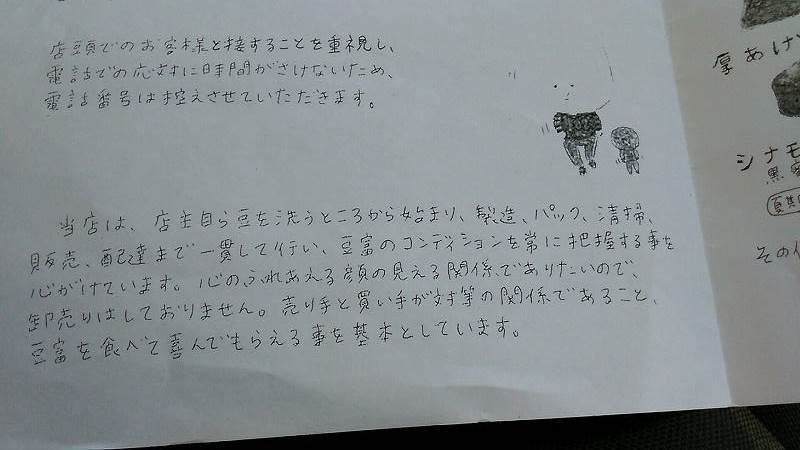 店頭でのお客様と接することを重視し、
電話での応対に時間がさけないため、
電話番号は控えさせていただきます。
当店は、店主自ら豆を洗うところから始まり、製造、パック、清掃、
販売、配達まで一貫して行い、豆富のコンディションを常に把握する事を
心がけています。心のふれあえる顔の見える関係でありたいので、
卸売りはしておりません。売り手と買い手が対等の関係であること、
豆富を食べて喜んでもらえる事を基本としています。
厚あげ
シナモ
黒
夏期
その他